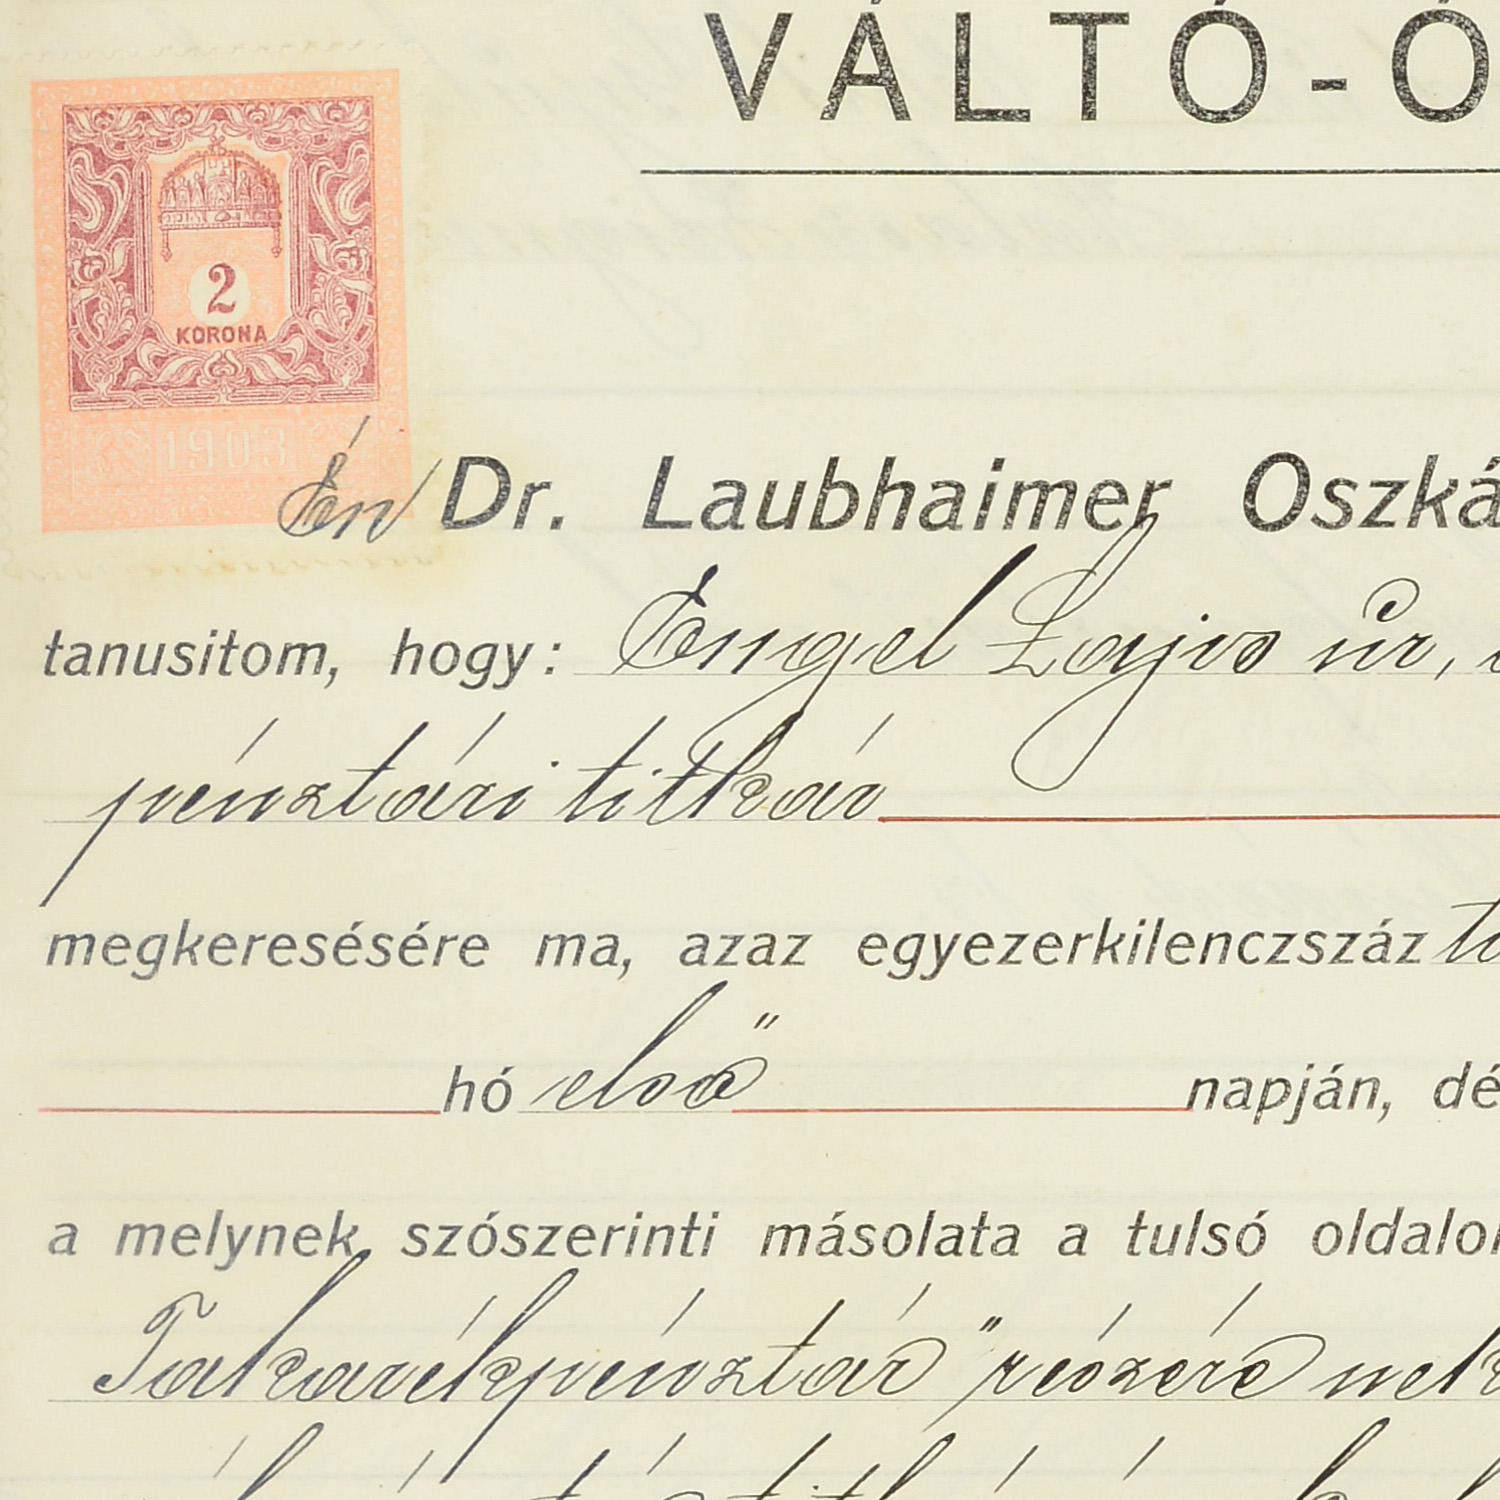 VÁLTÓ-Ó
2
KORONA
1903
Én Dr. Laubhaimer Oszká
tanusitom, hogy: Engel Lajos úr,
pénztári titkár
megkeresésére ma, azaz egyezerkilenczszáz
hó első napján, dé
a melynek szószerinti másolata a tulsó oldalon
Takarékpénztár" részére nek